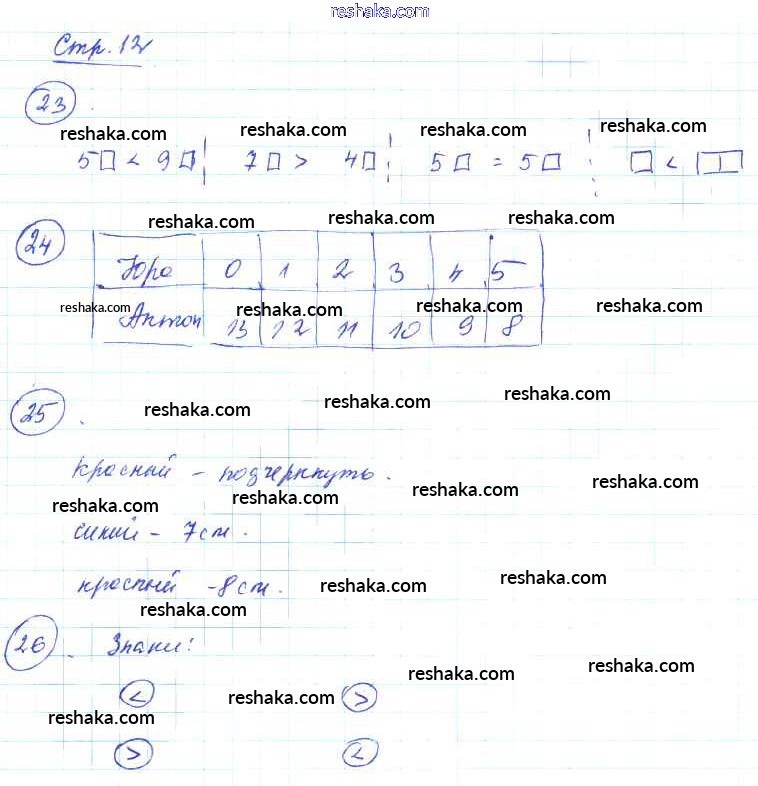 reshaka.com
Стр. 12
23.
reshaka.com reshaka.com reshaka.com reshaka.com
5□ < 9□ 7□ > 4□ 5□ = 5□ □ < □□
reshaka.com reshaka.com reshaka.com
24
Юра 0 1 2 3 4 5
reshaka.com reshaka.com reshaka.com reshaka.com
Антон 13 12 11 10 9 8
25.
reshaka.com reshaka.com reshaka.com
красный – подчеркнуть.
reshaka.com reshaka.com reshaka.com reshaka.com
синий – 7см.
красный – 8см.
reshaka.com reshaka.com reshaka.com
26. Знаки:
reshaka.com reshaka.com
< >
reshaka.com reshaka.com
> <